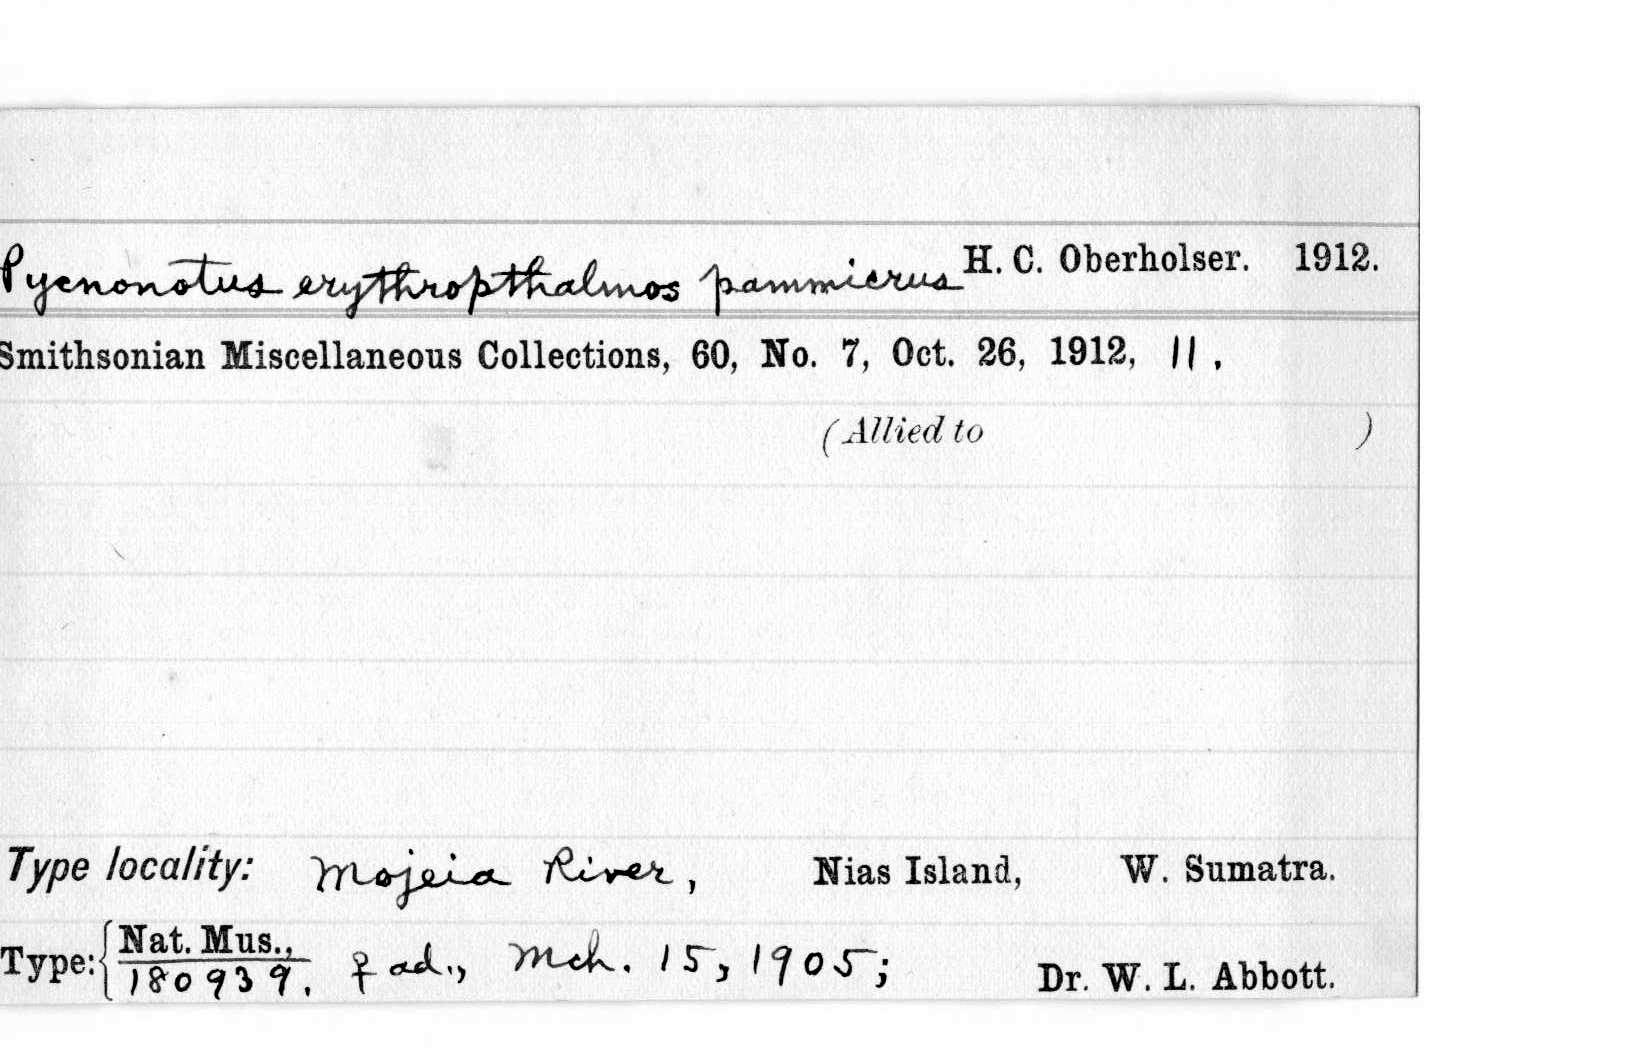 Pycnonotus erythropthalmos pammicrus H. C. Oberholser. 1912.
Smithsonian Miscellaneous Collections, 60, No. 7, Oct. 26, 1912, 11.
(Allied to )
Type locality: Mojeia River, Nias Island, W. Sumatra.
Type: { Nat. Mus.,
180939. ♀ ad., Mch. 15, 1905; Dr. W. L. Abbott.